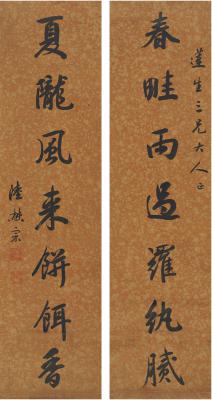 春畦雨過羅紈膩
蓮生三兄大人正
夏隴風来餅餌香
陸增宗